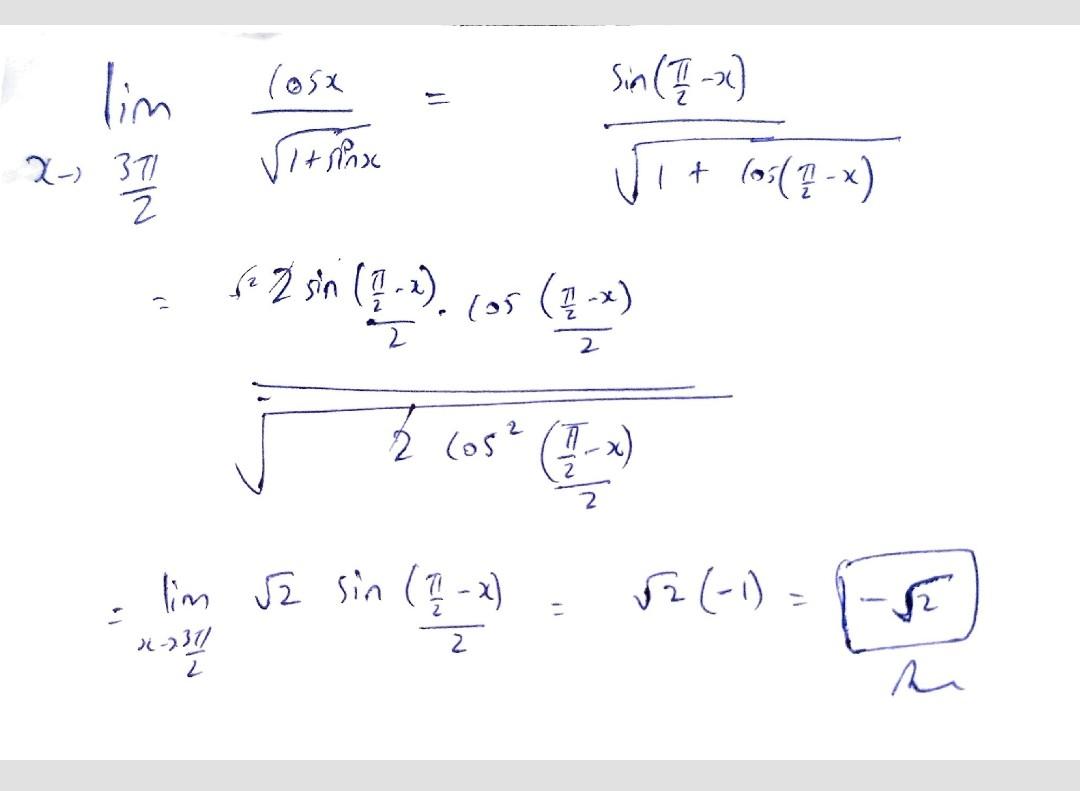 lim x→3π/2 cosx/√(1+sinx) = sin(π/2 -x)/√(1 + cos(π/2 -x))
= √2 2 sin (π/2 -x)/2 . cos (π/2 -x)/2 / √(2 cos² (π/2 -x)/2)
= lim x→3π/2 √2 sin (π/2 -x)/2 = √2 (-1) = -√2